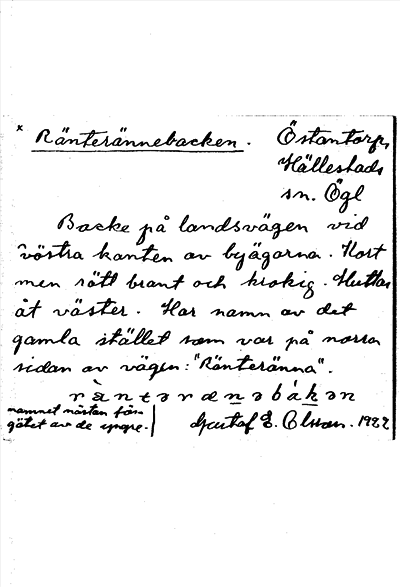 x Ränterännebacken. Östantorp,
Hällestads
sn. Ögl
Backe på landsvägen vid
västra kanten av byägorna. Kort
men rätt brant och krokig. Sluttar
åt väster. Har namn av det
gamla stället som var på norra
sidan av vägen: "Ränteränna".
ràntərænəbákən
namnet nästan för-
gätet av de yngre.
Gustaf E. Olsson. 1922